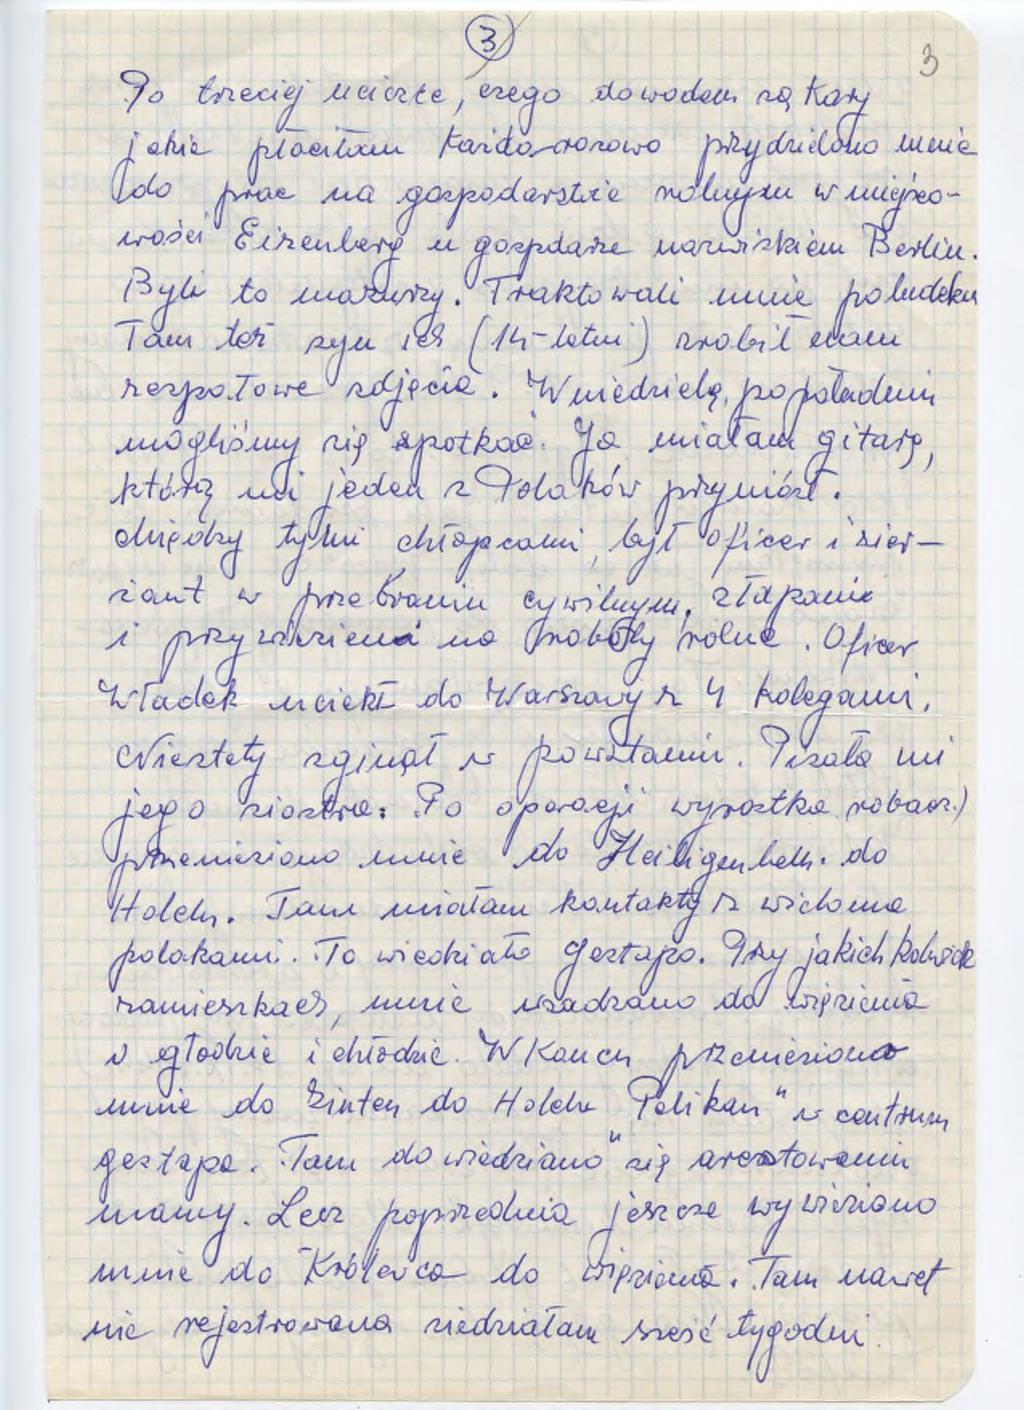 3
3
Po trzeciej ucieczce, czego dowodem są kary
jakie płaciłam każdorazowo przydzielono mnie
do prac na gospodarstwie rolnym w miejsco-
wości Eisenberg u gospdarza nazwiskiem Berlin.
Byli to mazurzy. Traktowali mnie poludzku
Tam też syn ich (14-letni) zrobił nam
zespołowe zdjęcia. W niedzielę, popołudniu
mogliśmy się spotkać. Ja miałam gitarę,
którą mi jeden z Polaków przyniósł.
Między tymi chłopcami, był oficer i sier-
żant w przebraniu cywilnym, złapani
i przywiezieni na roboty rolne. Oficer
Władek uciekł do Warszawy z 4 kolegami.
Niestety zginął w powstaniu. Pisała mi
jego siostra. Po operacji wyrostka robacz.)
przeniesiono mnie do Heiligenbeil. do
Hotelu. Tam miałam kontakty z wieloma
polakami. To wiedziało Gestapo. Przy jakichkolwiek
zamieszkach, mnie wsadzano do więzienia
o głodzie i chłodzie. W Końcu przeniesiono
mnie do Zinten do Hotelu "Pelikan" w centrum
gestapo. Tam dowiedziano się aresztowaniu
mamy. Lecz poprzednia jeszcze wywieziono
mnie do Królewca do więzienia. Tam nawet
nie rejestrowana siedziałam sześć tygodni.